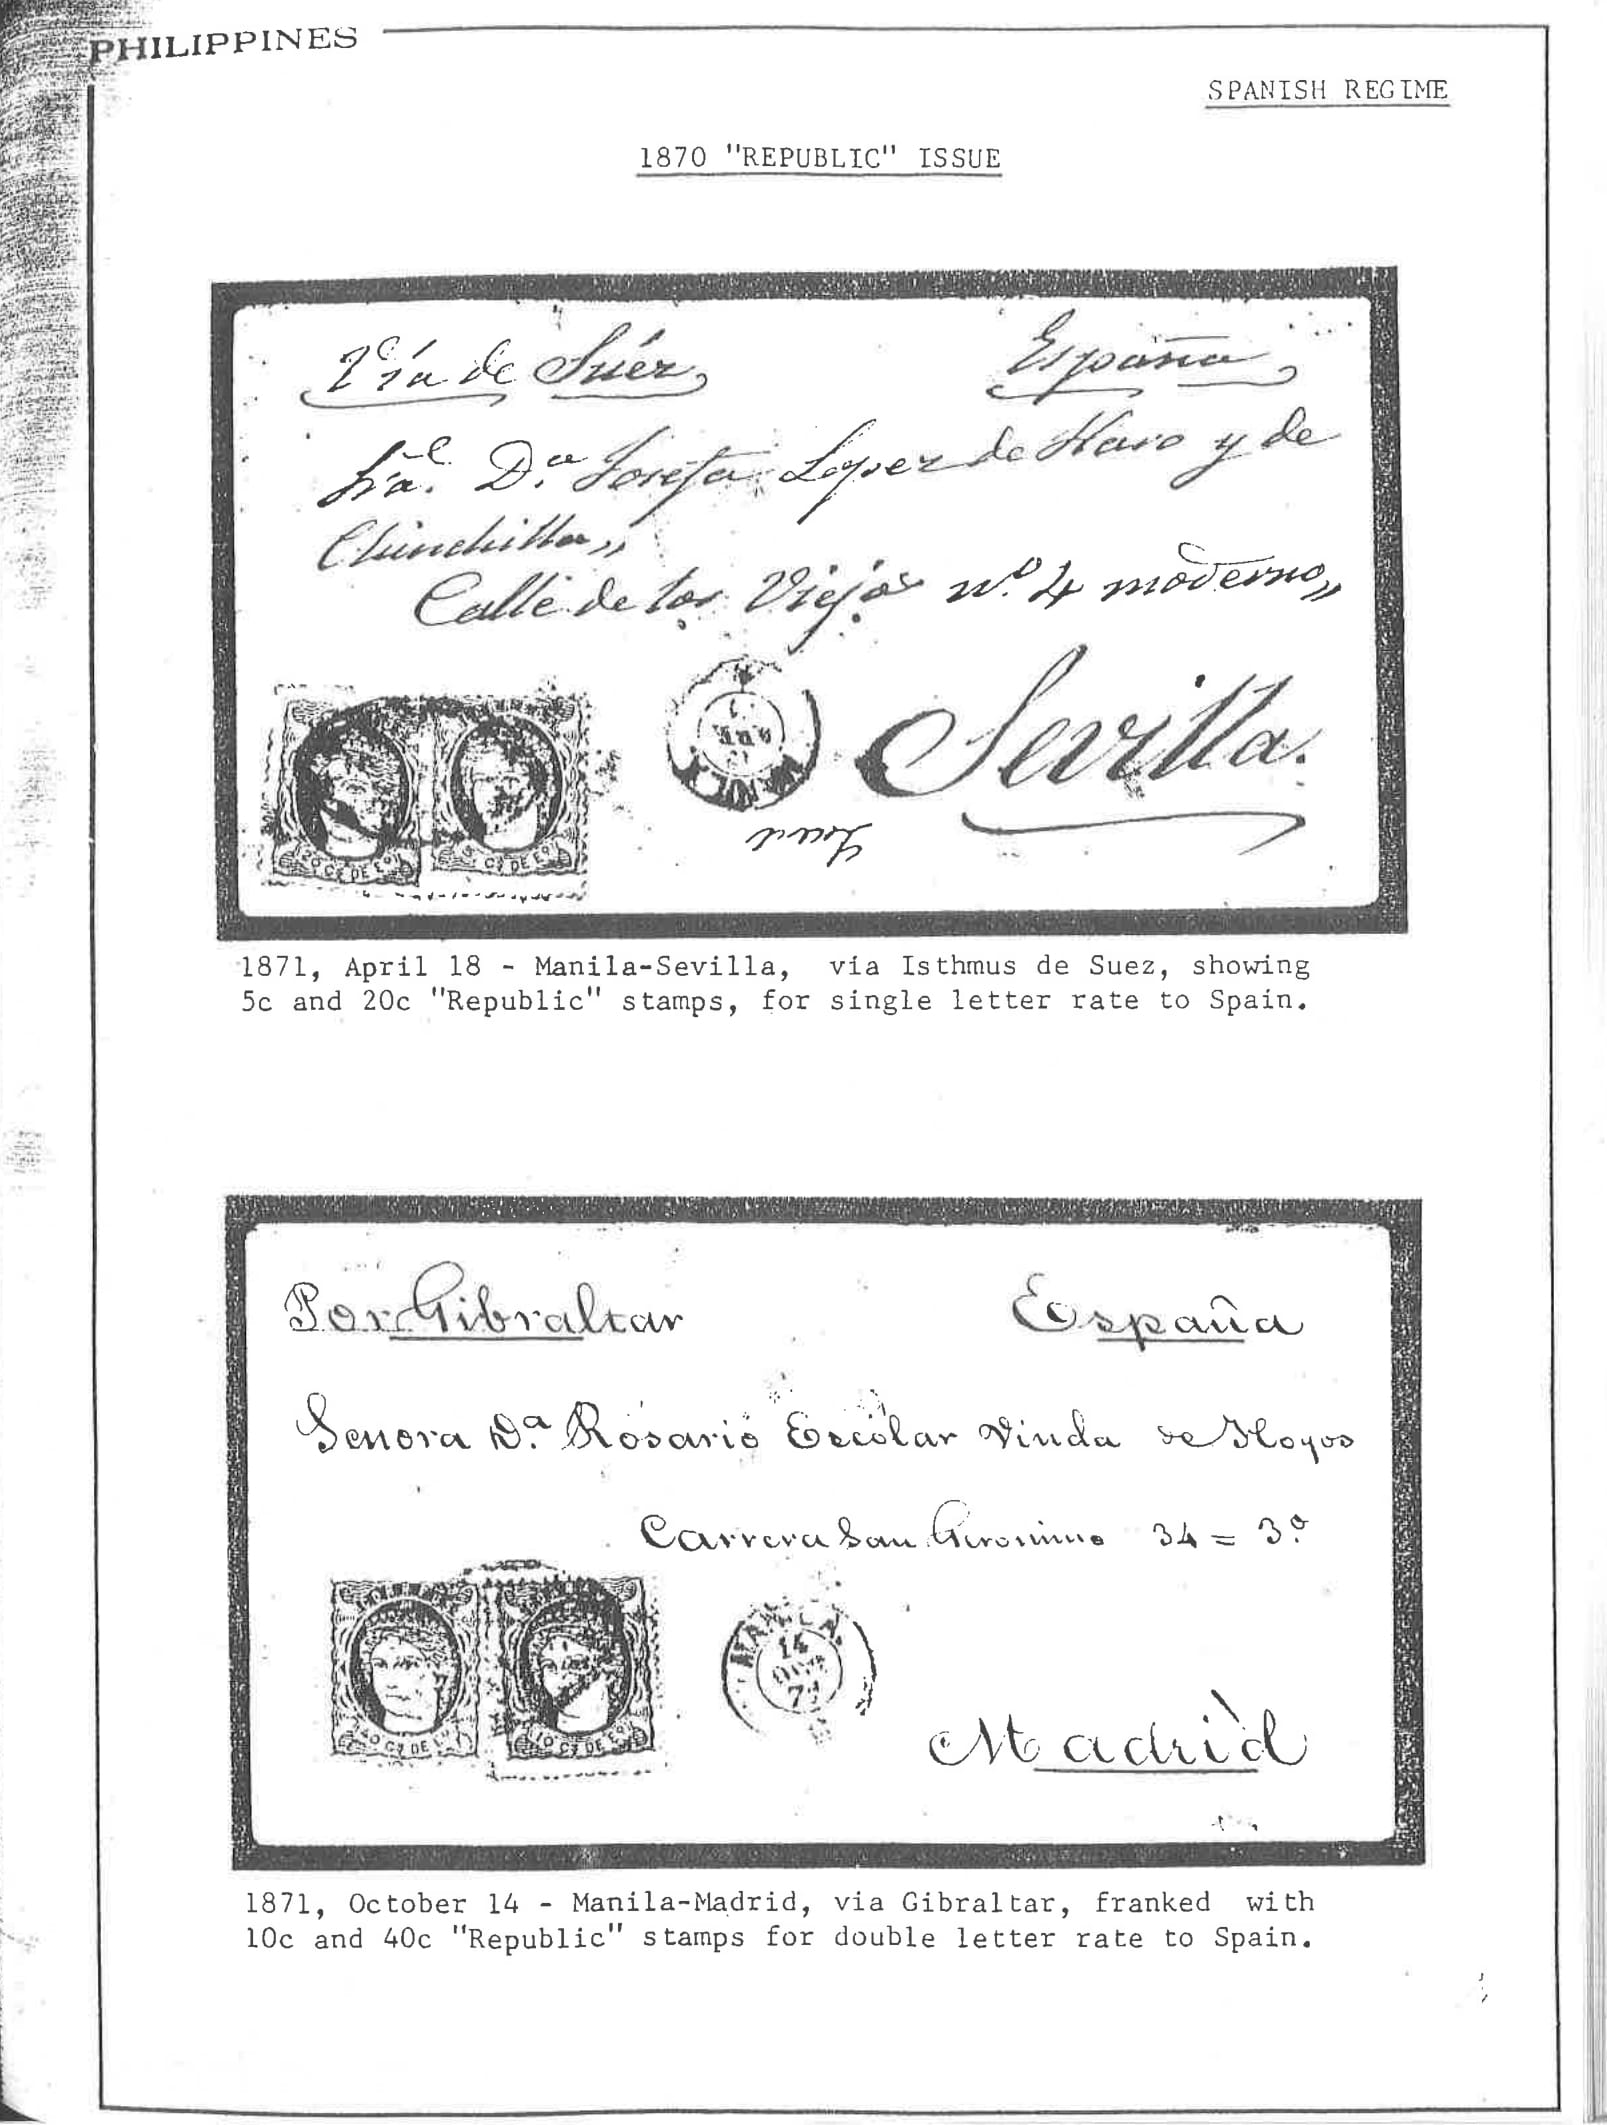 PHILIPPINES
SPANISH REGIME
1870 "REPUBLIC" ISSUE
Vía de Suéz España
Sra. Da. Josefa Lopez de Haro y de
Chinchilla„
Calle de los Viejos no. 4 moderno„
Sevilla.
20 Cs DE Eo
5 Cs DE Eo
MANILA
1871, April 18 - Manila-Sevilla, via Isthmus de Suez, showing
5c and 20c "Republic" stamps, for single letter rate to Spain.
Por Gibraltar España
Senora Da. Rosario Escolar Viuda de Hoyos
Carrera San Geronimo 34 = 3o
40 Cs DE Eo
10 Cs DE Eo
MANILA
14
Madrid
1871, October 14 - Manila-Madrid, via Gibraltar, franked with
10c and 40c "Republic" stamps for double letter rate to Spain.